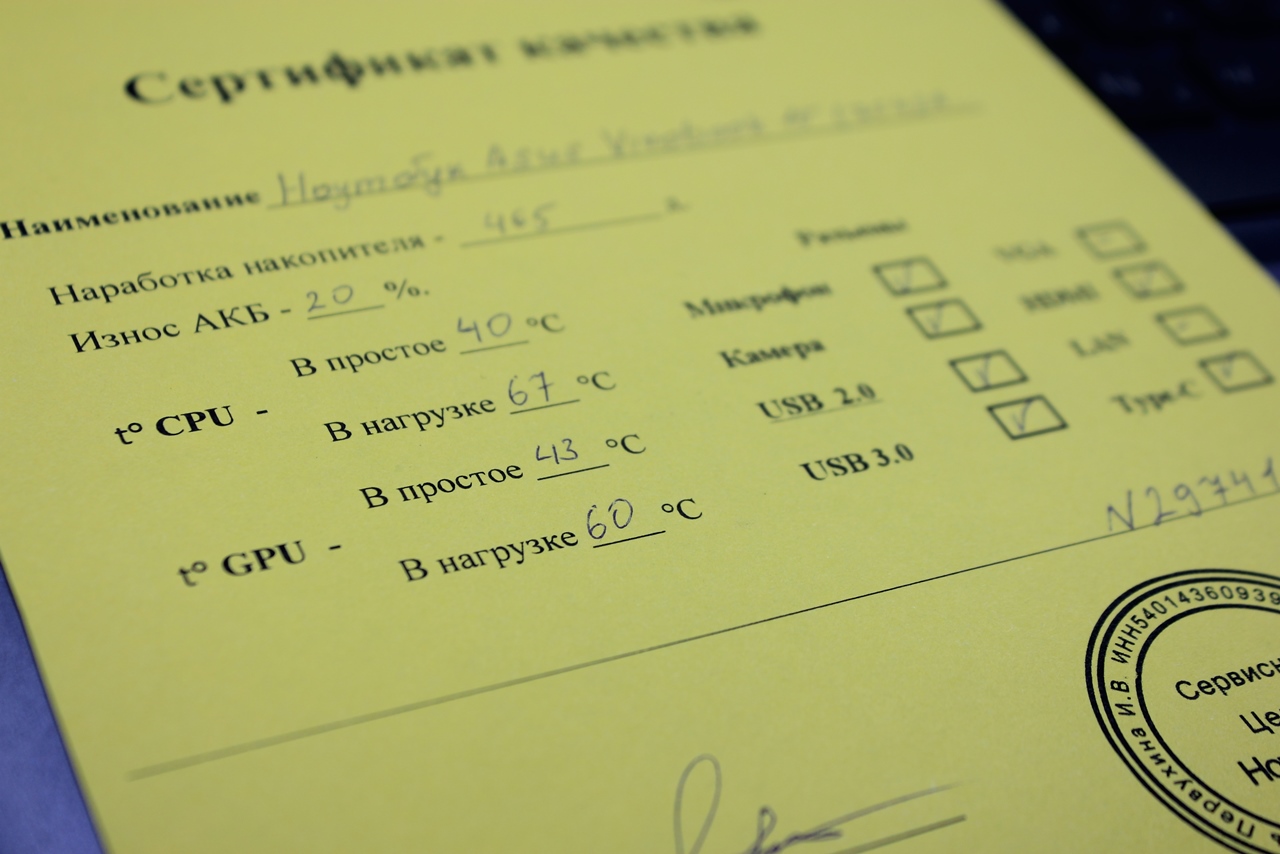 Сертификат качества
Наименование Ноутбук Asus Vivobook
Наработка накопителя - 465
Износ АКБ - 20 %.
t° CPU -
В простое 40 °C
В нагрузке 67 °C
t° GPU -
В простое 43 °C
В нагрузке 60 °C
Разъемы
Микрофон
Камера
USB 2.0
USB 3.0
VGA
HDMI
LAN
Type-C
N29741
Первухина И.В. ИНН54014360939
Сервисн
Це
Но